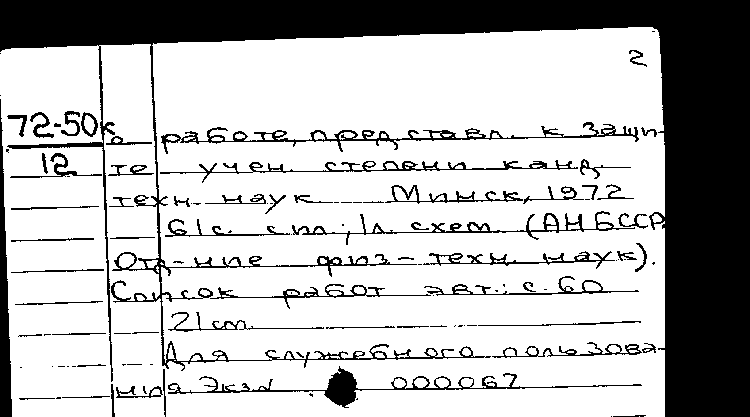 2
72-50к
12
о работе, представл. к защи-
те учен. степени канд.
техн. наук Минск, 1972
61с. с ил.; 1л. схем. (АН БССР
Отд-ние физ-техн. наук).
Список работ авт.: с. 60
21 cm.
Для служебного пользова-
ния. Экз. № 000067